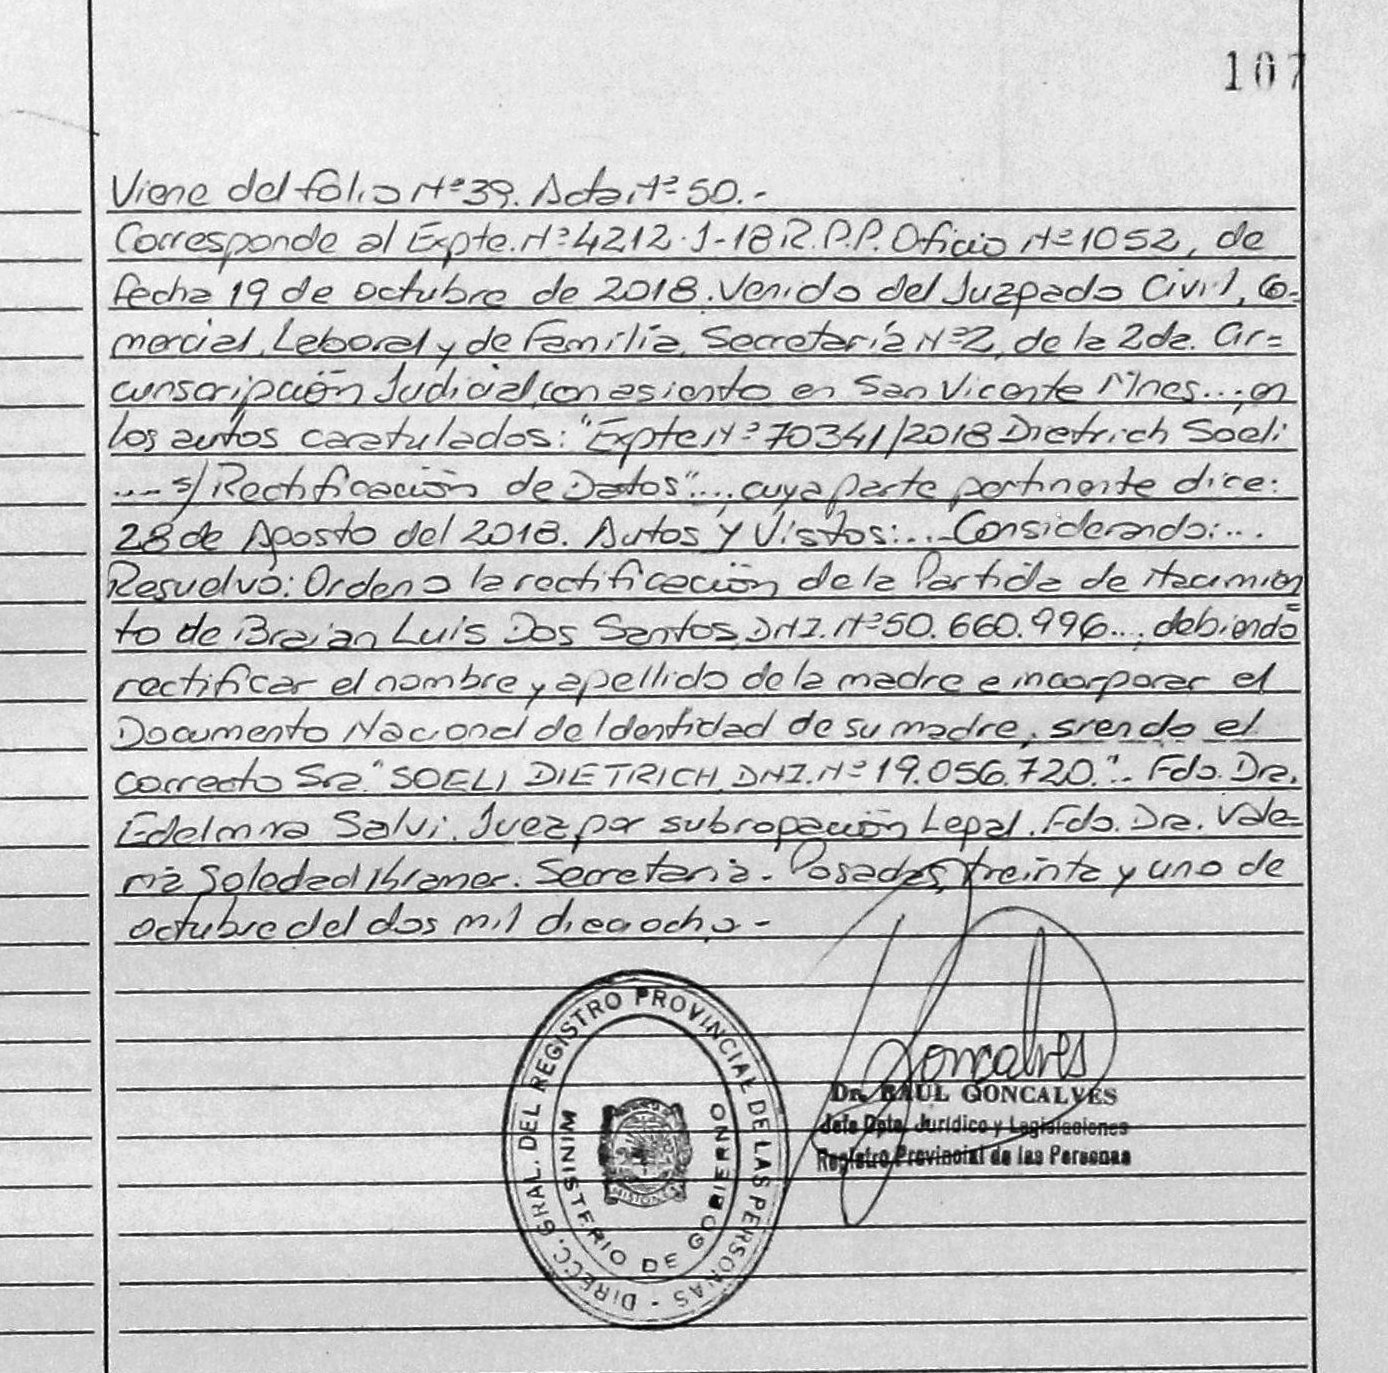 107
Viene del folio Nº39. Acta Nº50.-
Corresponde al Expte. Nº4212-J-18 R.P.P. Oficio Nº1052, de
fecha 19 de octubre de 2018. Venido del Juzgado Civil, Co=
mercial, Laboral y de Familia, Secretaría Nº2, de la 2da. Cir=
cunscripción Judicial, con asiento en San Vicente Mnes...; en
los autos caratulados: "Expte Nº 70341/2018 Dietrich Soeli
.... s/ Rectificación de Datos"..., cuya parte pertinente dice:
28 de Agosto del 2018. Autos y Vistos:... Considerando:...
Resuelvo: Ordeno la rectificación de la Partida de Nacimien
=
to de Braian Luis Dos Santos, DNI. Nº50.660.996..., debiendo
rectificar el nombre y apellido de la madre e incorporar el
Documento Nacional de Identidad de su madre, siendo el
correcto Sra. "SOELI DIETRICH, DNI. Nº 19.056.720.".. Fdo. Dra.
Edelmira Salvi. Juez por subrogación Legal. Fdo. Dra. Vale=
ria Soledad Ibramer. Secretaria.- Posadas, treinta y uno de
octubre del dos mil dieciocho.-
DIRECC. GRAL. DEL REGISTRO PROVINCIAL DE LAS PERSONAS -
MINISTERIO DE GOBIERNO
MISIONES
Goncalves
Dr. RAUL GONCALVES
Jefe Dpto. Jurídico y Legislaciones
Registro Provincial de las Personas